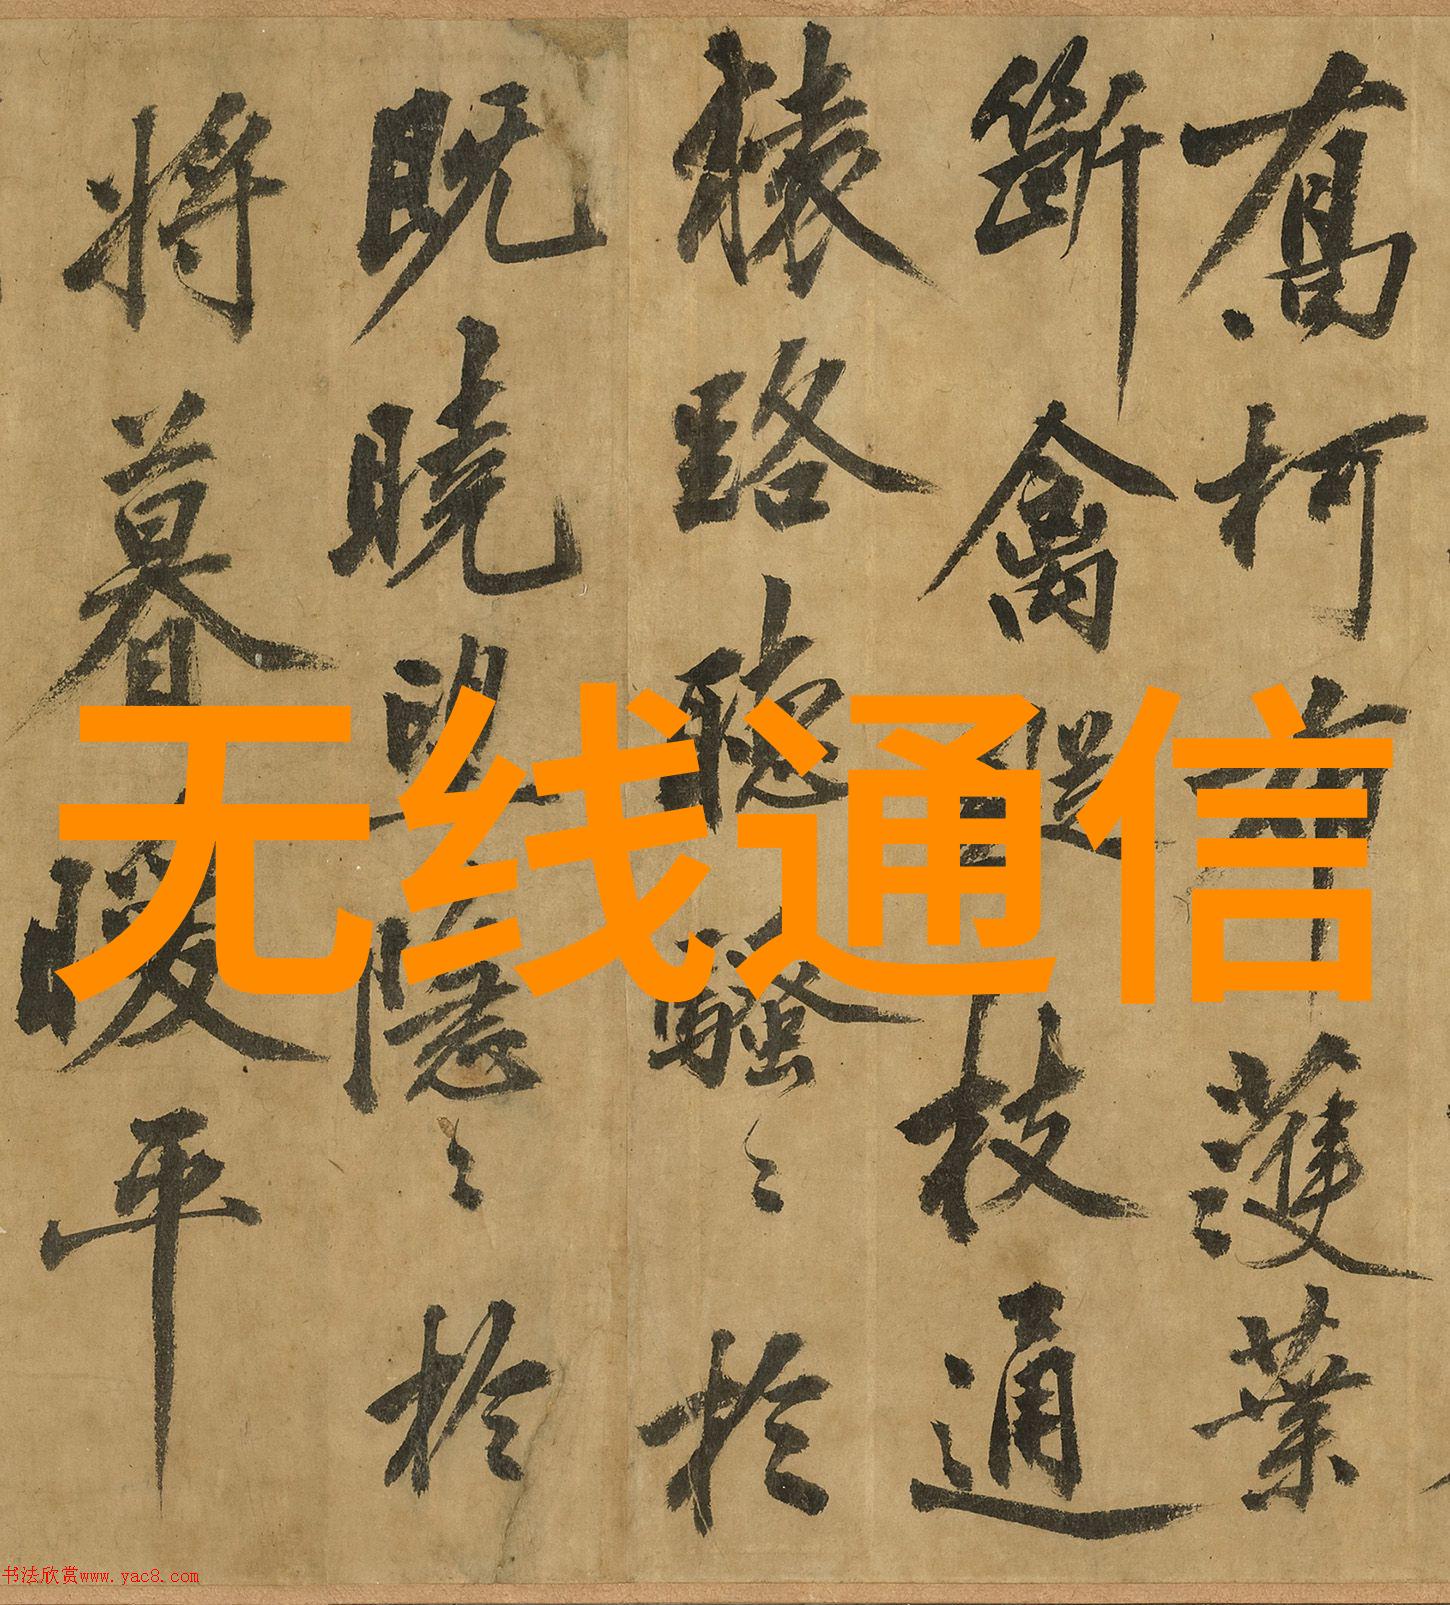 无线通信
喬柯布濩葉
斷禽枝通
猿路聽騷〻於
既曉望隱〻於
將暮暖平
书法欣赏www.yac8.com